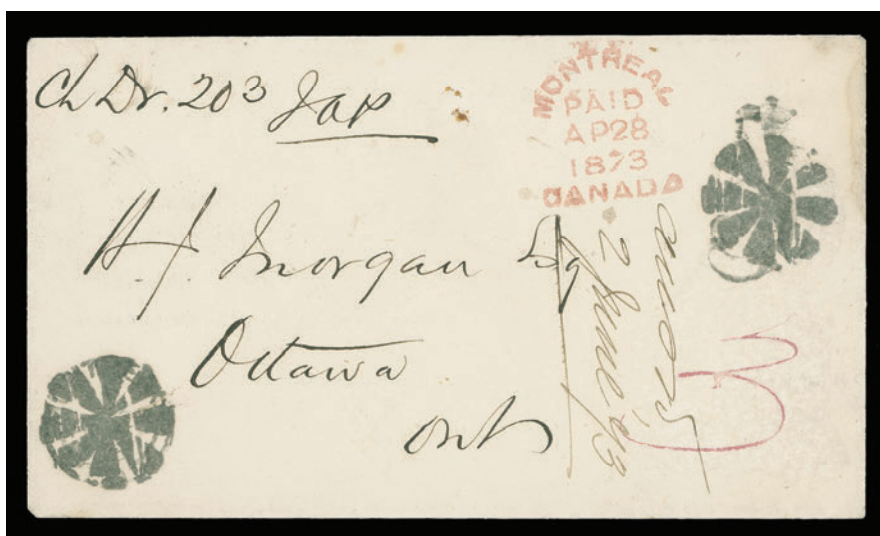 Ch Dr. 203 Jap
MONTREAL
PAID
AP 28
1873
CANADA
H.J. Morgan Esq
Ottawa
Ont
2 June, 73
3